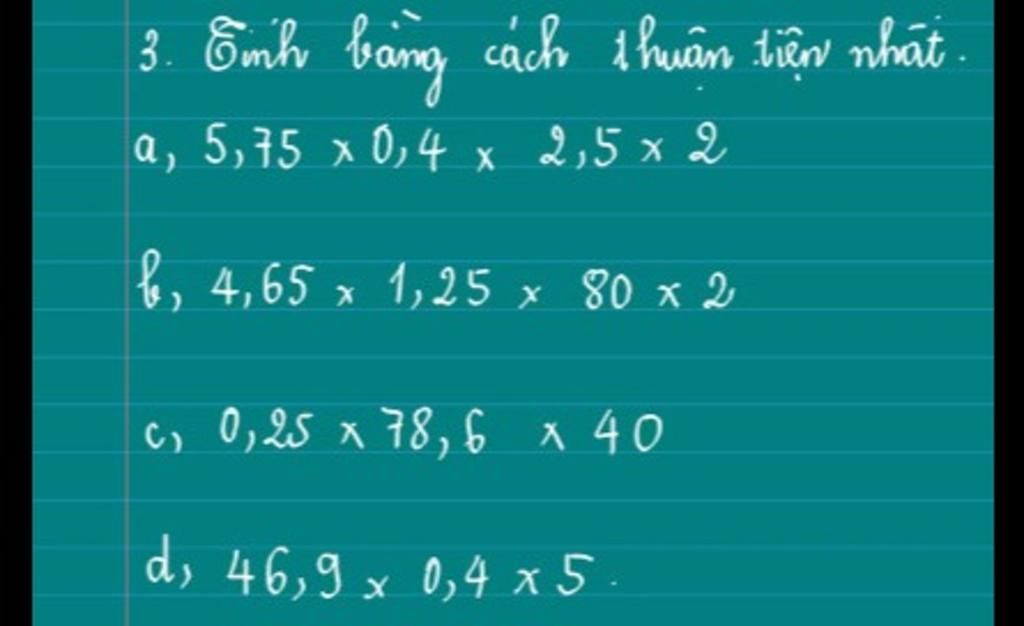 3. Tính bằng cách thuận tiện nhất.
a, 5,75 x 0,4 x 2,5 x 2
b, 4,65 x 1,25 x 80 x 2
c, 0,25 x 78,6 x 40
d, 46,9 x 0,4 x 5.